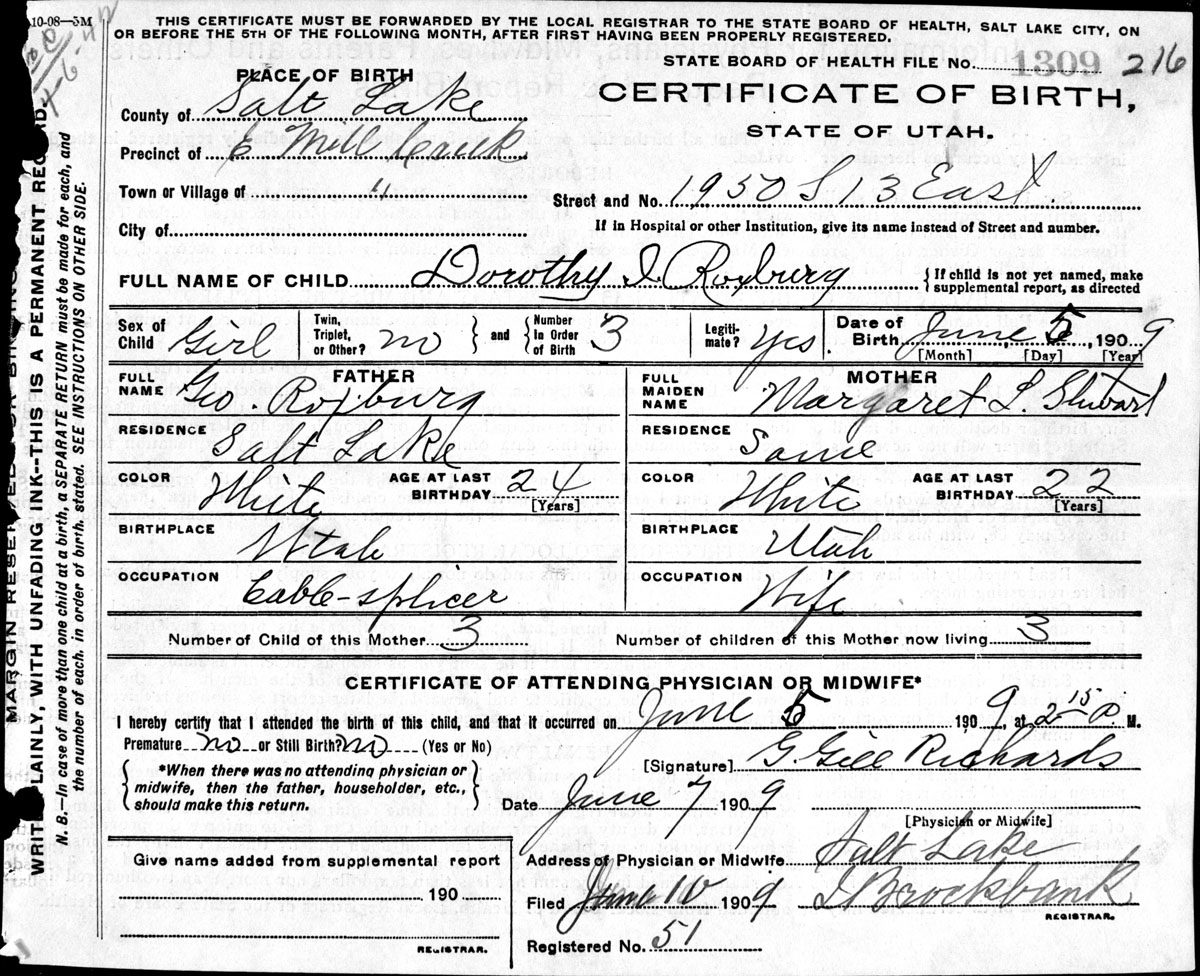 10-08—3M
THIS CERTIFICATE MUST BE FORWARDED BY THE LOCAL REGISTRAR TO THE STATE BOARD OF HEALTH, SALT LAKE CITY, ON
OR BEFORE THE 5TH OF THE FOLLOWING MONTH, AFTER FIRST HAVING BEEN PROPERLY REGISTERED.
STATE BOARD OF HEALTH FILE No. 1309 216
PLACE OF BIRTH
CERTIFICATE OF BIRTH,
STATE OF UTAH.
County of Salt Lake
Precinct of E Mill Creek
Town or Village of "
Street and No. 1950 S 13 East.
City of
If in Hospital or other Institution, give its name instead of Street and number.
FULL NAME OF CHILD Dorothy I. Roxburg {If child is not yet named, make
supplemental report, as directed
Sex of Child Girl Twin, Triplet, or Other? no } and { Number In Order of Birth 3 Legiti- mate? Yes. Date of Birth June 5, 1909
[Month] [Day] [Year]
FATHER
MOTHER
FULL NAME Geo. Roxburg
FULL MAIDEN NAME Margaret L. Stuart
RESIDENCE Salt Lake
RESIDENCE Same
COLOR White AGE AT LAST BIRTHDAY 24 [Years]
COLOR White AGE AT LAST BIRTHDAY 22 [Years]
BIRTHPLACE Utah
BIRTHPLACE Utah
OCCUPATION Cable-splicer
OCCUPATION Wife
Number of Child of this Mother 3 Number of children of this Mother now living 3
CERTIFICATE OF ATTENDING PHYSICIAN OR MIDWIFE*
I hereby certify that I attended the birth of this child, and that it occurred on June 5 1909, at 2 15 P. M.
Premature no or Still Birth? no (Yes or No)
*When there was no attending physician or
midwife, then the father, householder, etc.,
should make this return.
[Signature] G. Gill Richards
Date June 7 1909
[Physician or Midwife]
Give name added from supplemental report
190
REGISTRAR.
Address of Physician or Midwife Salt Lake
Filed June 10 1909 Brockbank
REGISTRAR.
Registered No. 51
MARGIN RESERVED FOR BINDING
WRITE PLAINLY, WITH UNFADING INK--THIS IS A PERMANENT RECORD.
N. B.—In case of more than one child at a birth, a SEPARATE RETURN must be made for each, and
the number of each, in order of birth, stated. SEE INSTRUCTIONS ON OTHER SIDE.